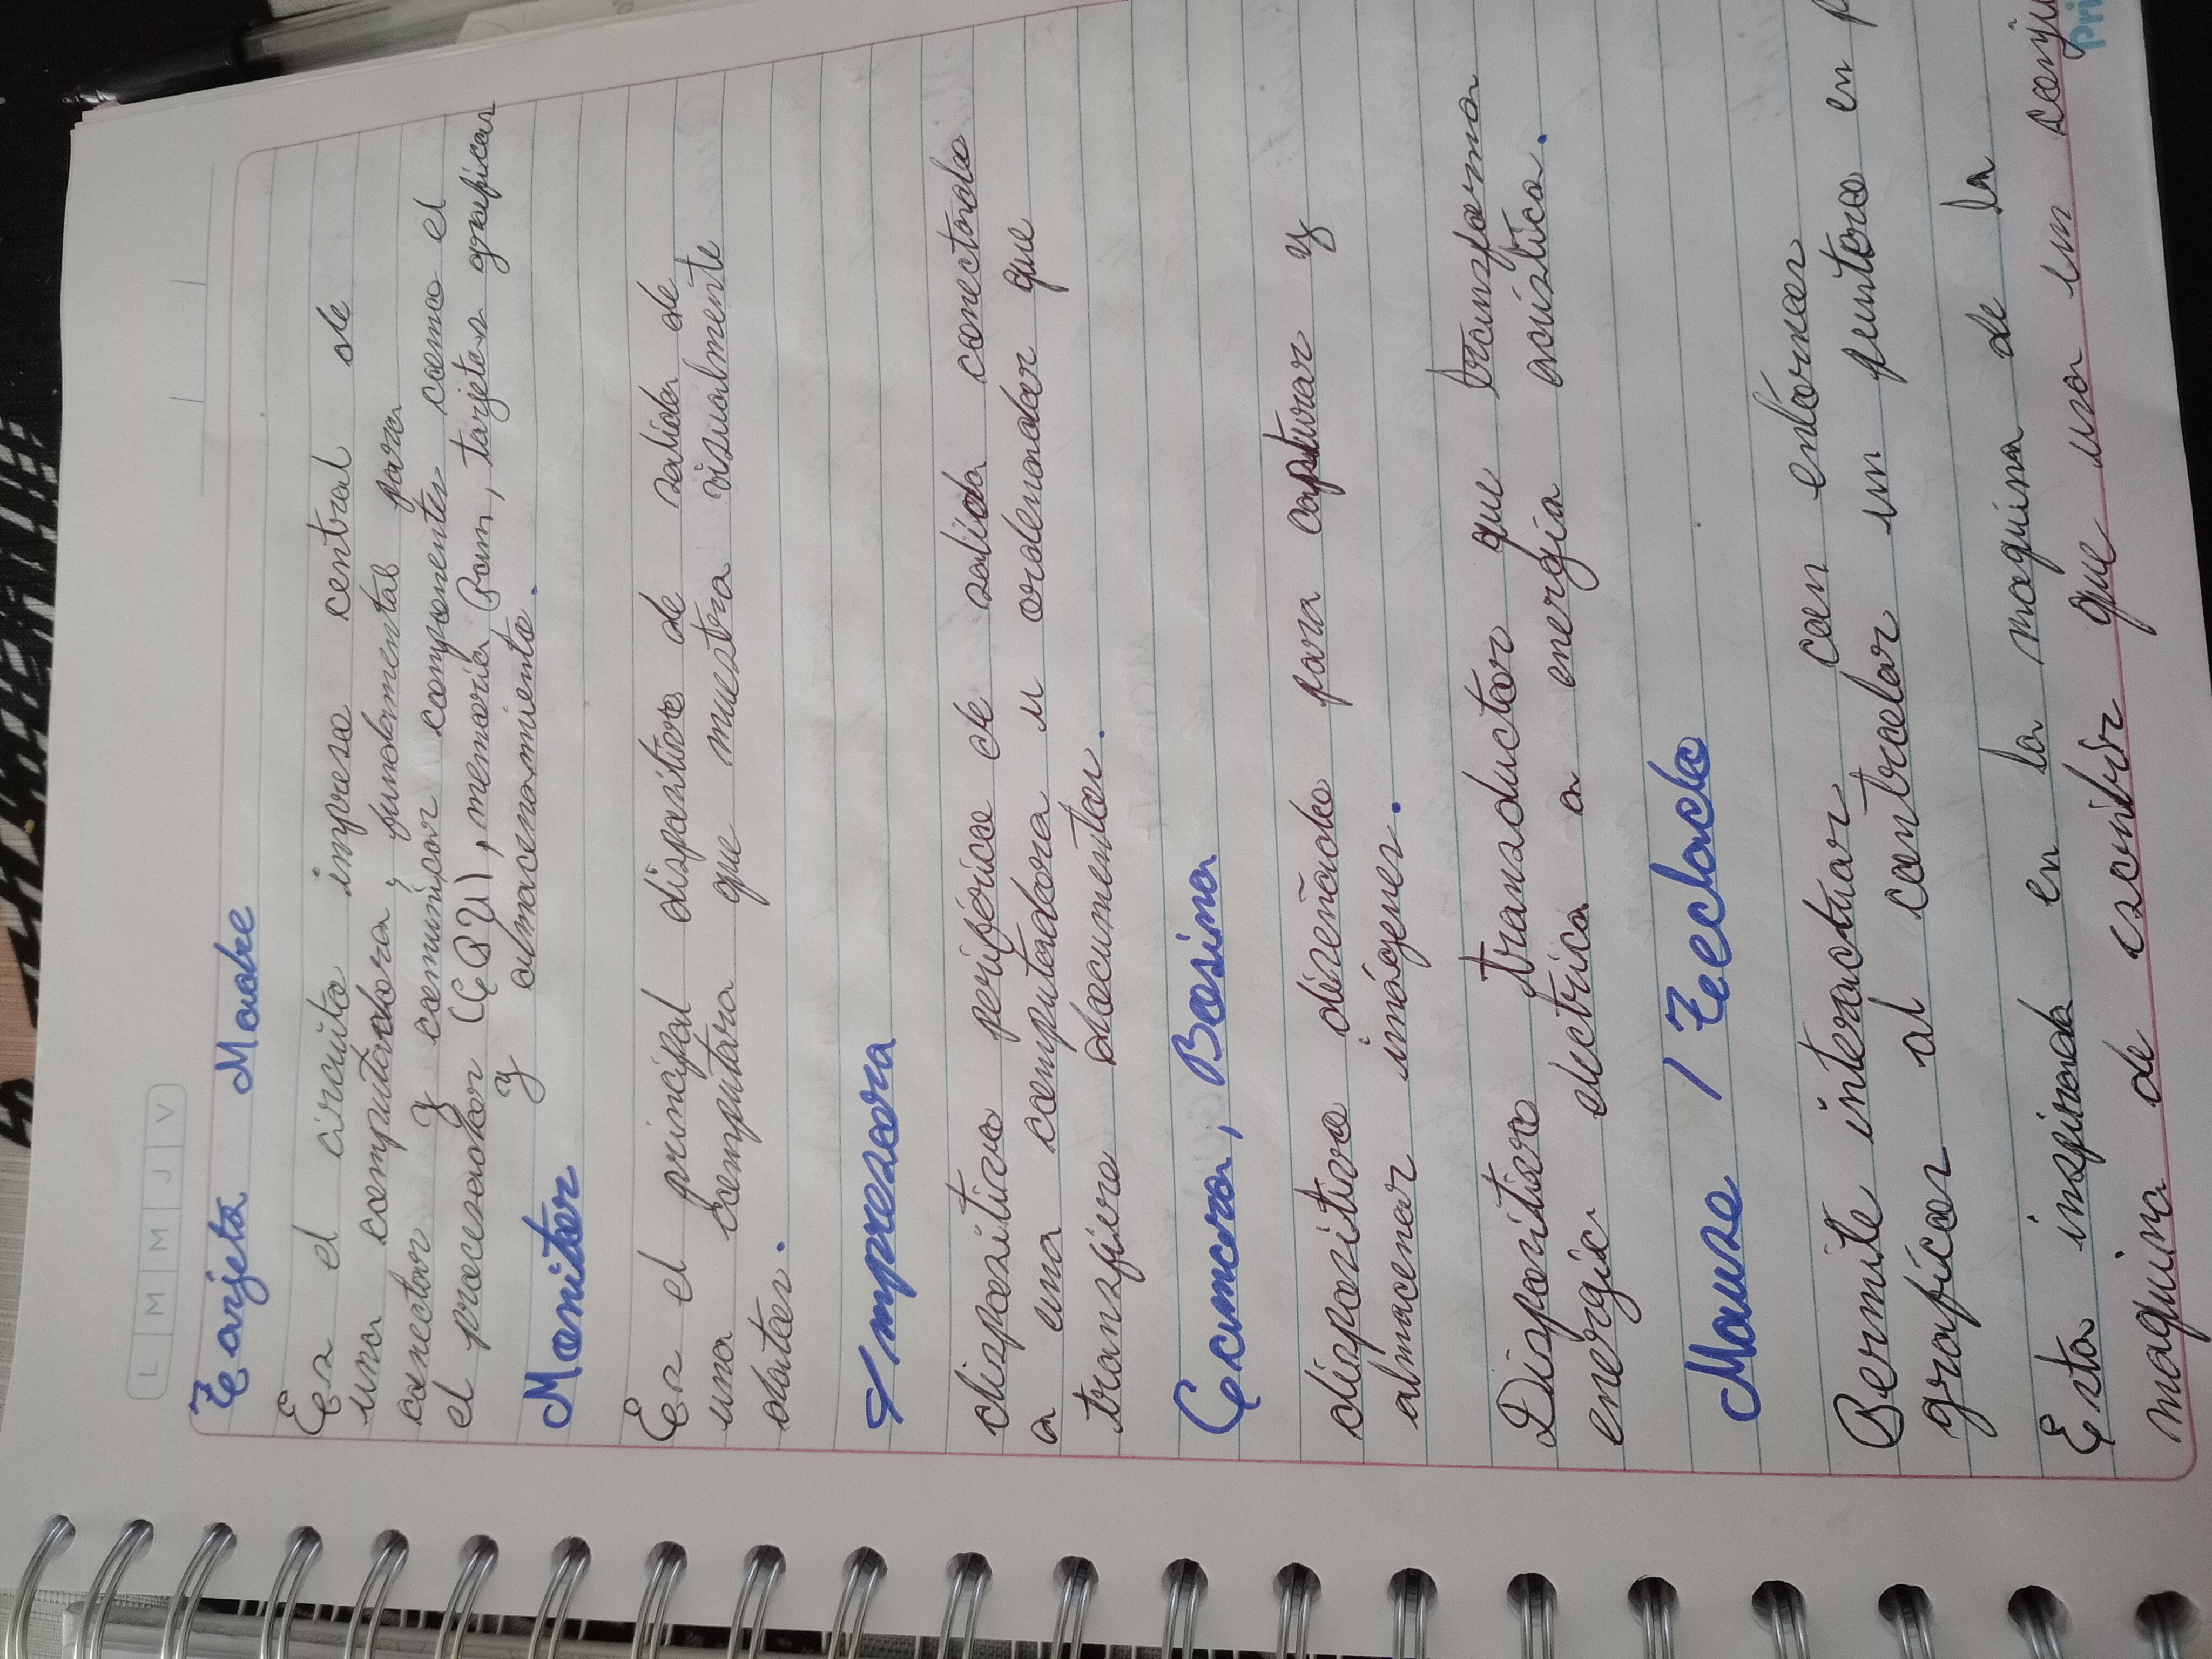 L M M J V
Tarjeta Madre
Es el circuito impreso central de
una computadora, fundamental para
conectar y comunicar componentes como el
el procesador (CPU), memoria Ram, tarjetas graficas
y almacenamiento.
Monitor
Es el principal dispositivo de salida de
una computara que muestra visualmente
datos.
Impresora
dispositivo periférico de salida conectado
a una computadora u ordenador que
transfiere documentos.
Camara, Bosina
dispositivo diseñado para capturar y
almacenar imágenes.
Dispositivo transductor que transforma
energía electrica a energía acústica.
Mouse / Teclado
Permite interactuar con entornos
graficos al controlar un puntero en
Esta inspirado en la maquina de la
maquina de escribir que usa un conju
Pri